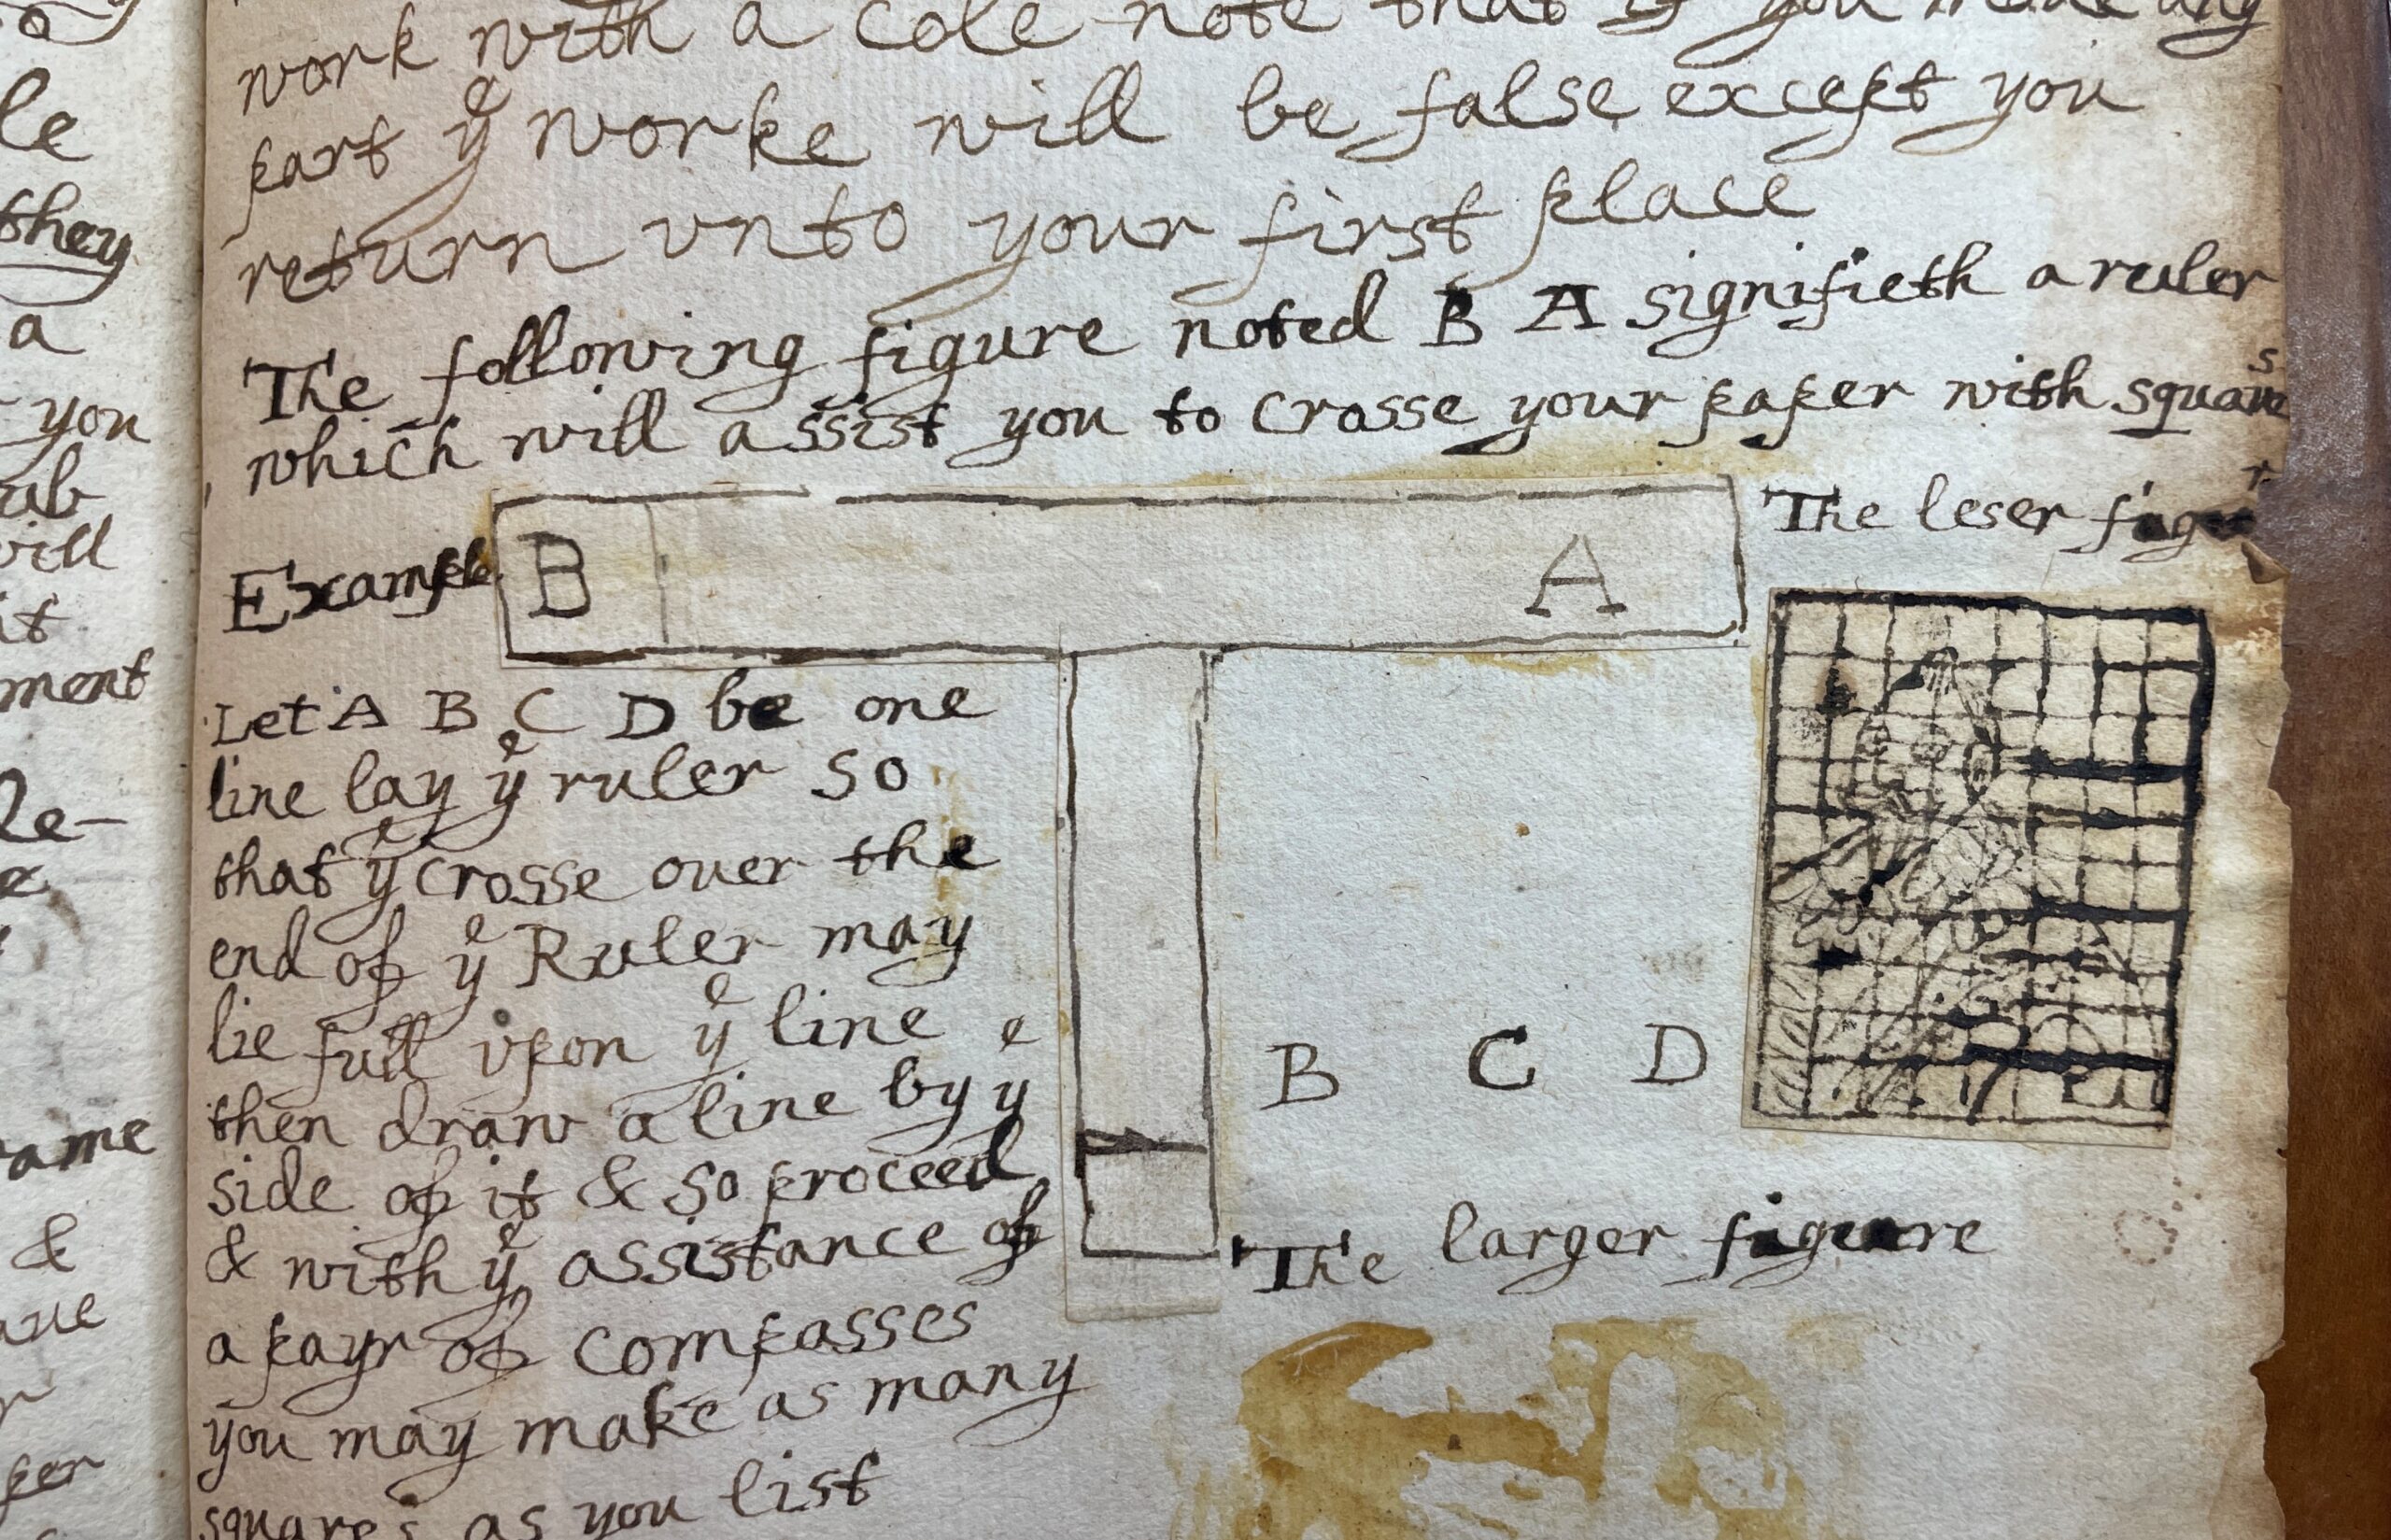 le
they
a
you
ab
will
it
ment
ame
&
per
work with a cole note that if you make any
part yͤ worke will be false except you
return vnto your first place
The following figure noted B A signifieth a ruler
which will assist you to crosse your paper with squares
Example
B A
The leser figur
Let A B C D be one
line lay yͤ ruler so
that yͤ crosse ouer the
end of yͤ Ruler may
lie full vpon yͤ line
then draw a line by yͤ
side of it & so proceed
& with yͤ assistance of
a payr of compasses
you may make as many
squares as you list
B C D
The larger figure